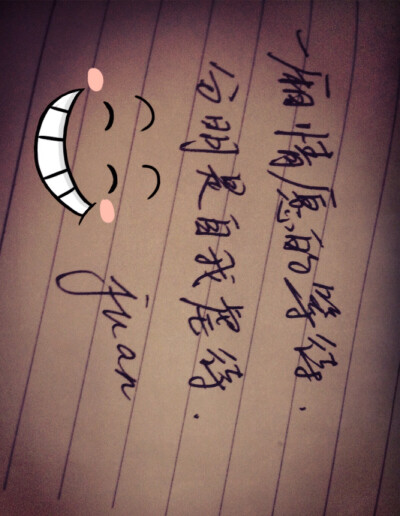 一厢情愿的等待.
分明是自我虐待.
juan